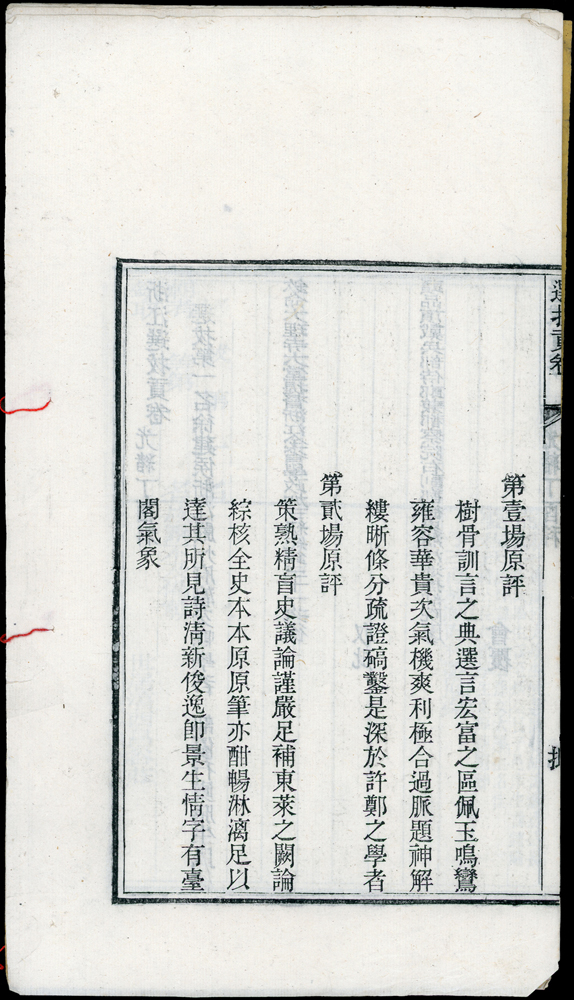 選拔貢卷
第壹場原評
樹骨訓言之典選言宏富之區佩玉鳴鸞
雍容華貴次氣機爽利極合過脈題神解
縷晰條分疏證碻鑿是深於許鄭之學者
第貳場原評
策熟精盲史議論謹嚴足補東萊之闕論
綜核全史本本原原筆亦酣暢淋漓足以
達其所見詩清新俊逸卽景生情字有臺
閣氣象